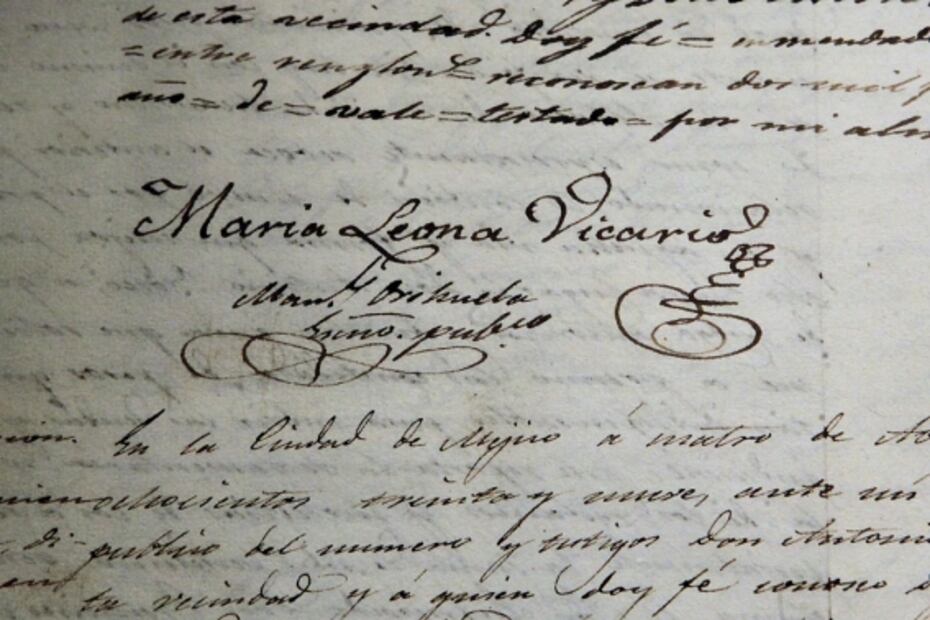 de esta vecindad. doy fé = enmendado
= entre renglons = reconoscan dos mil p
año = de = vale = testado = por mi al
Maria Leona Vicario
Man.l Orihuela
Esño. pubco
cion. En la Ciudad de Mejico á cuatro de
ochocientos treinta y nueve, ante mi
publico del numero y testigos Don Antonio
ta vecindad y á quien doy fé conosco